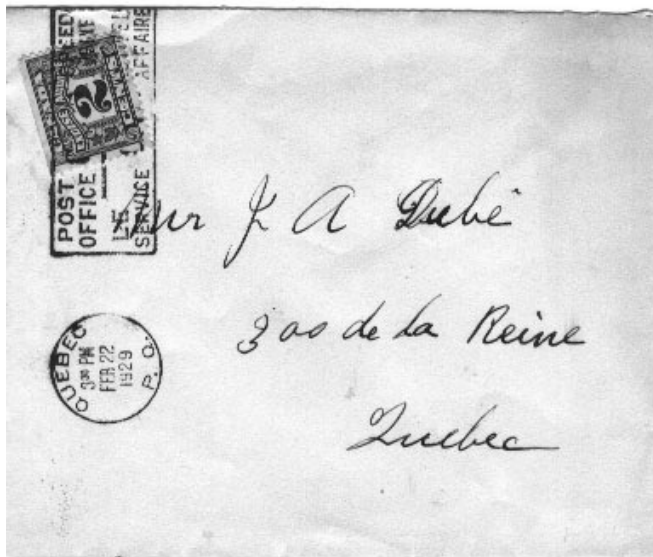 POST
OFFICE
SERVICE
AFFAIRE
2
Mr J A Dubé
300 de la Reine
Quebec
QUEBEC P. Q.
3 30 PM
FEB 22
1929